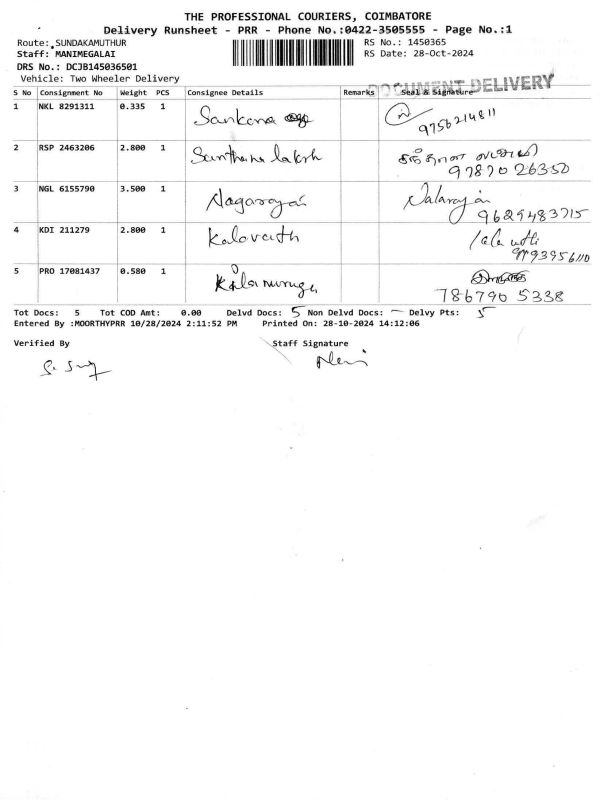 THE PROFESSIONAL COURIERS, COIMBATORE
Delivery Runsheet - PRR - Phone No.:0422-3505555 - Page No.:1
Route: SUNDAKAMUTHUR RS No.: 1450365
Staff: MANIMEGALAI RS Date: 28-Oct-2024
DRS No.: DCJB145036501
Vehicle: Two Wheeler Delivery
DOCUMENT DELIVERY
S No Consignment No Weight PCS Consignee Details Remarks Seal & Signature
1 NKL 8291311 0.335 1 Sankara
9756214811
2 RSP 2463206 2.800 1 Santhana laksh
9787026350
3 NGL 6155790 3.500 1 Nagarajan
9629483715
4 KDI 211279 2.800 1 Kalavath
5 PRO 17081437 0.580 1 Kalamurugu
786790 5338
Tot Docs: 5 Tot COD Amt: 0.00 Delvd Docs: 5 Non Delvd Docs: - Delvy Pts: 5
Entered By :MOORTHYPRR 10/28/2024 2:11:52 PM Printed On: 28-10-2024 14:12:06
Verified By Staff Signature